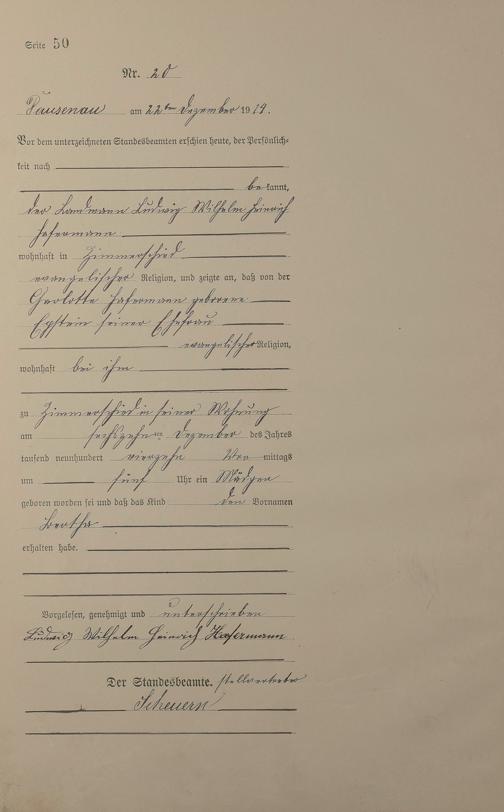 Seite 50
Nr. 20
Dausenau am 22ten Dezember 1914.
Vor dem unterzeichneten Standesbeamten erschien heute, der Persönlich-
keit nach
bekannt,
der Landmann Ludwig Wilhelm Heinrich
Hafermann
wohnhaft in Zimmerschied
evangelischer Religion, und zeigte an, daß von der
Hafermann geborene
Epstein seiner Ehefrau
evangelischer Religion,
wohnhaft bei ihm
zu Zimmerschied in seiner Wohnung
am sechszehnten Dezember des Jahres
tausend neunhundert vierzehn Vor mittags
um fünf Uhr ein Mädchen
geboren worden sei und daß das Kind den Vornamen
Bertha
erhalten habe.
Vorgelesen, genehmigt und unterschrieben
Ludwig Wilhelm Heinrich Hafermann
Der Standesbeamte. stellvertreter
Scheuern